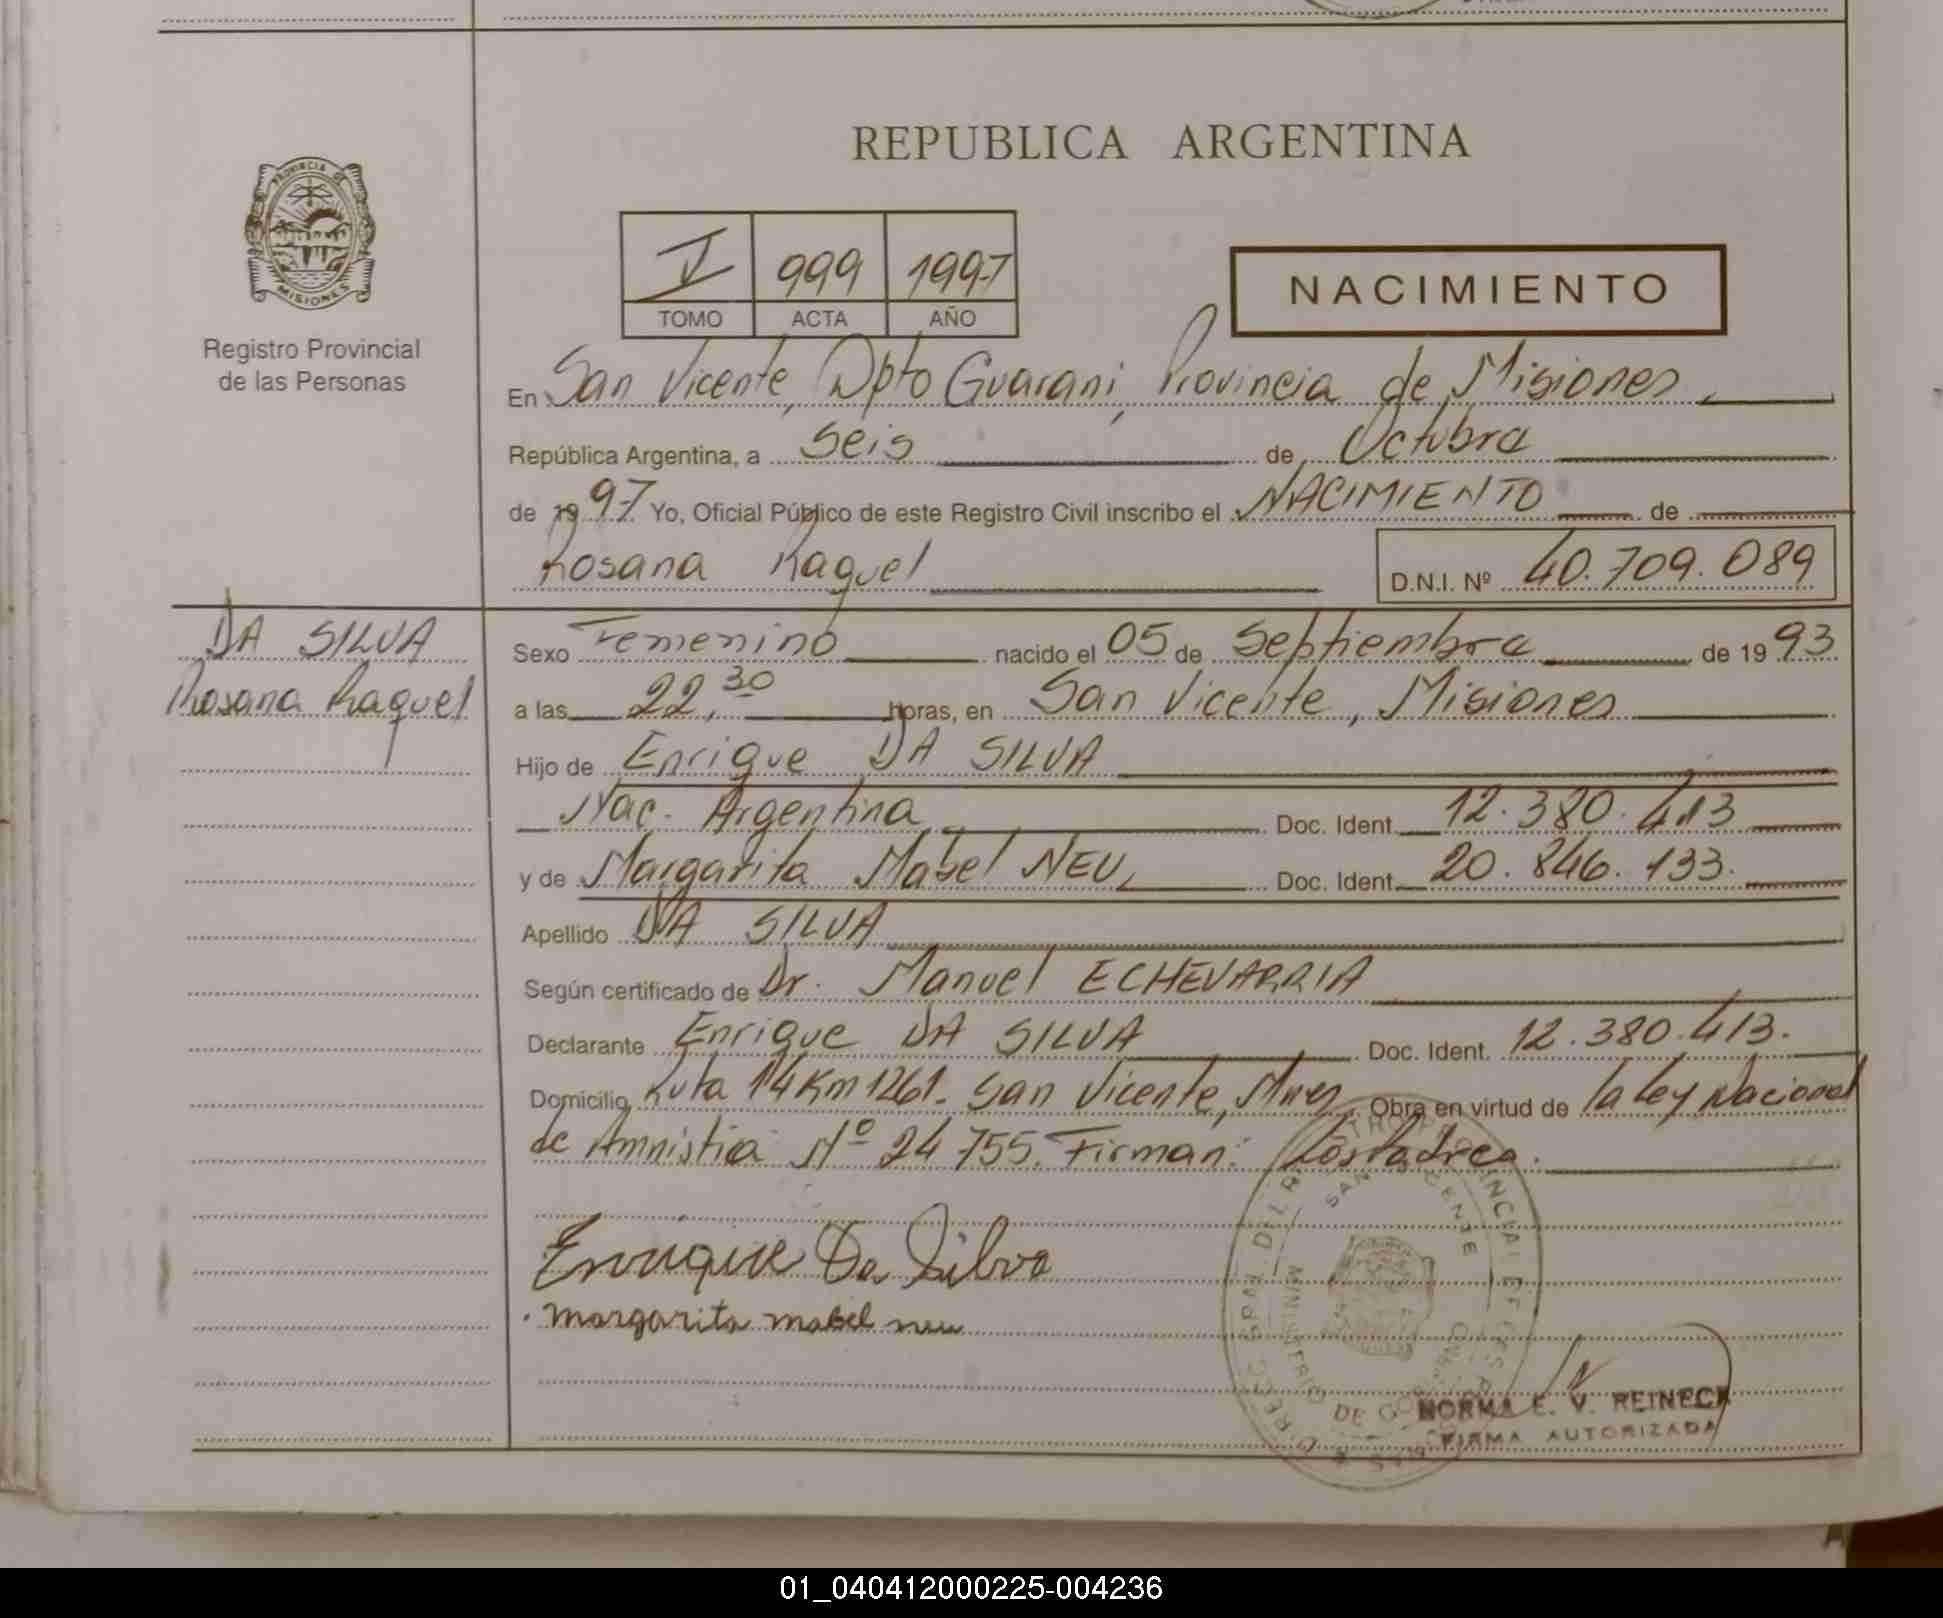 REPUBLICA ARGENTINA
PROVINCIA DE
MISIONES
Registro Provincial
de las Personas
V 999 1997
TOMO ACTA AÑO
NACIMIENTO
En San Vicente, Dpto Guarani, Provincia de Misiones
República Argentina, a Seis de Octubre
de 1997 Yo, Oficial Público de este Registro Civil inscribo el NACIMIENTO de
Rosana Raquel D.N.I. Nº 40.709.089
DA SILVA
Rosana Raquel
Sexo Femenino nacido el 05 de Septiembre de 1993
a las 22,30 horas, en San Vicente, Misiones
Hijo de Enrique DA SILVA
Nac. Argentina Doc. Ident. 12.380.413
y de Margarita Mabel NEU, Doc. Ident. 20.846.133.
Apellido DA SILVA
Según certificado de Dr. Manuel ECHEVARRIA
Declarante Enrique DA SILVA Doc. Ident. 12.380.413.
Domicilio Ruta 14 Km 1261. San Vicente, Mnes Obra en virtud de la Ley Nacional
de Amnistia Nº 24755. Firman: Los Padres.
Enrique Da Silva
Margarita mabel neu
SAN VICENTE
MINISTERIO DE GOBIERNO
NORMA E. V. REINECK
FIRMA AUTORIZADA
01_040412000225-004236